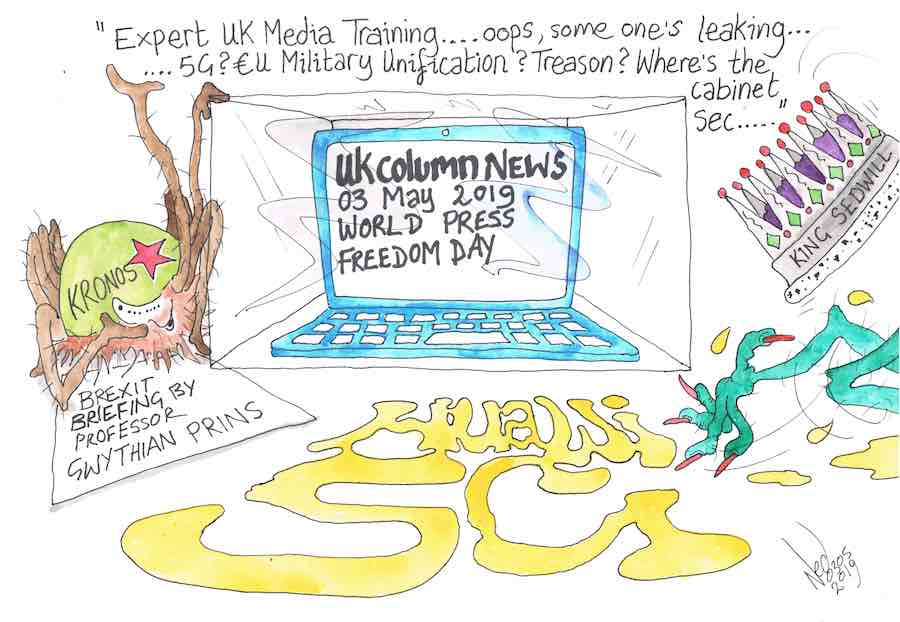 " Expert UK Media Training....oops, some one's leaking...
.... 5G?€U Military Unification? Treason? Where's the
cabinet
Sec....."
UK Column News
03 May 2019
WORLD PRESS
FREEDOM DAY
KING SEDWILL
KRONOS
BREXIT
BRIEFING BY
PROFESSOR
GWYTHIAN PRINS
HUAWEI
5G
2019